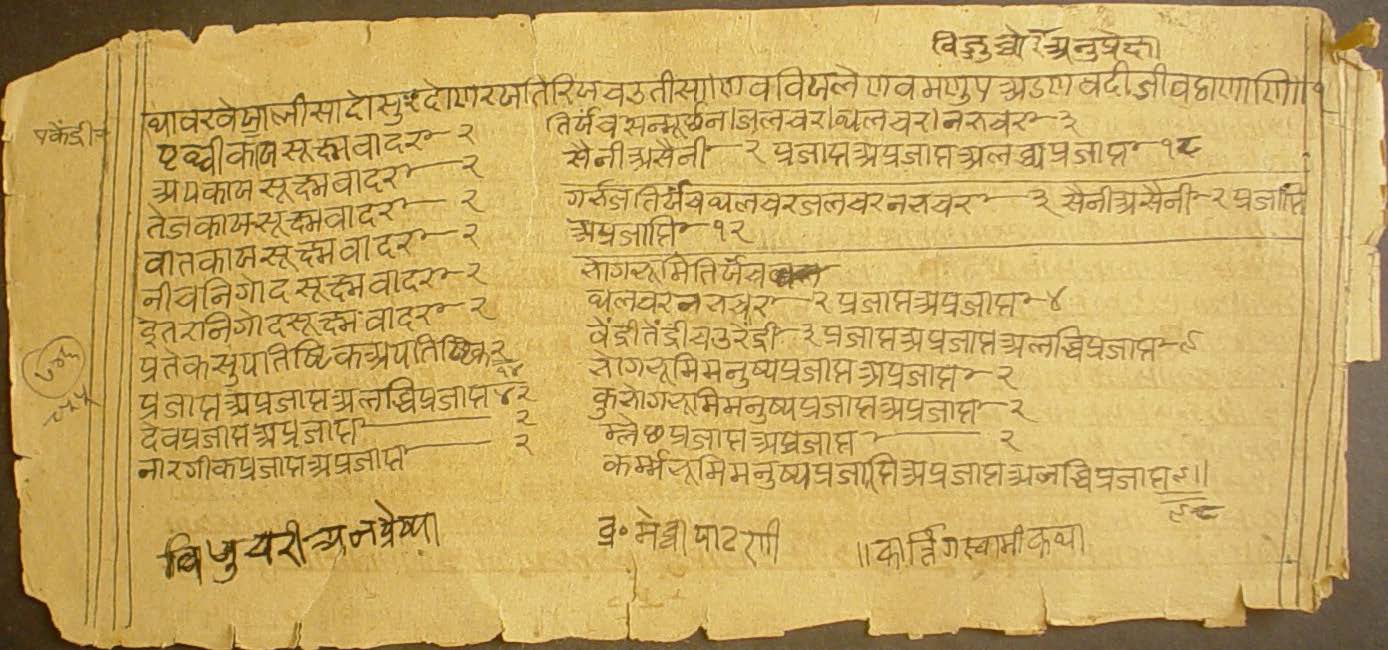 विजुचोरअनुप्रेक्षा
थावरवेयालीसा दो सुर दो णरय तिरिय चउतीसा। णव वियले णव मणुए अडणवदी जीवठाणाणि॥१
पृथ्वीकाय सूक्ष्म वादर २
अपकाय सूक्ष्म वादर २
तेजकाय सूक्ष्म वादर २
वातकाय सूक्ष्म वादर २
नीचनिगोद सूक्ष्म वादर २
इतरनिगोद सूक्ष्म वादर २
प्रतेक सुप्रतिष्टिक अप्रतिष्टिक २
१४
प्रजाप्त अप्रजाप्त अलद्धिप्रजाप्त ४२
देव प्रजाप्त अप्रजाप्त २
नारगीक प्रजाप्त अप्रजाप्त २
तिर्यंच सन्मूर्छन। जलचर। थलचर। नभचर ३
सैनी असैनी २ प्रजाप्त अप्रजाप्त अलब्ध्यप्रजाप्त १८
गर्भज तिर्यंच थलचर जलचर नभचर ३ सैनी असैनी २ प्रजाप्ति
अप्रजाप्ति १२
भोगभूमि तिर्यंच
थलचर नभचर २ प्रजाप्त अप्रजाप्त ४
वेंद्री तेंद्री चउरेंद्री ३ प्रजाप्त अप्रजाप्त अलद्धिप्रजाप्त ९
भोगभूमि मनुष्य प्रजाप्त अप्रजाप्त २
कुभोगभूमि मनुष्य प्रजाप्त अप्रजाप्त २
म्लेछ प्रजाप्त अप्रजाप्त २
कर्म्मभूमि मनुष्य प्रजाप्ति अप्रजाप्त अलद्धिप्रजाप्त ३॥
९८
विजुचरी अनप्रेष्या
व्र॰ मेघा पाटणी
॥कार्त्तिगस्वामी कथा